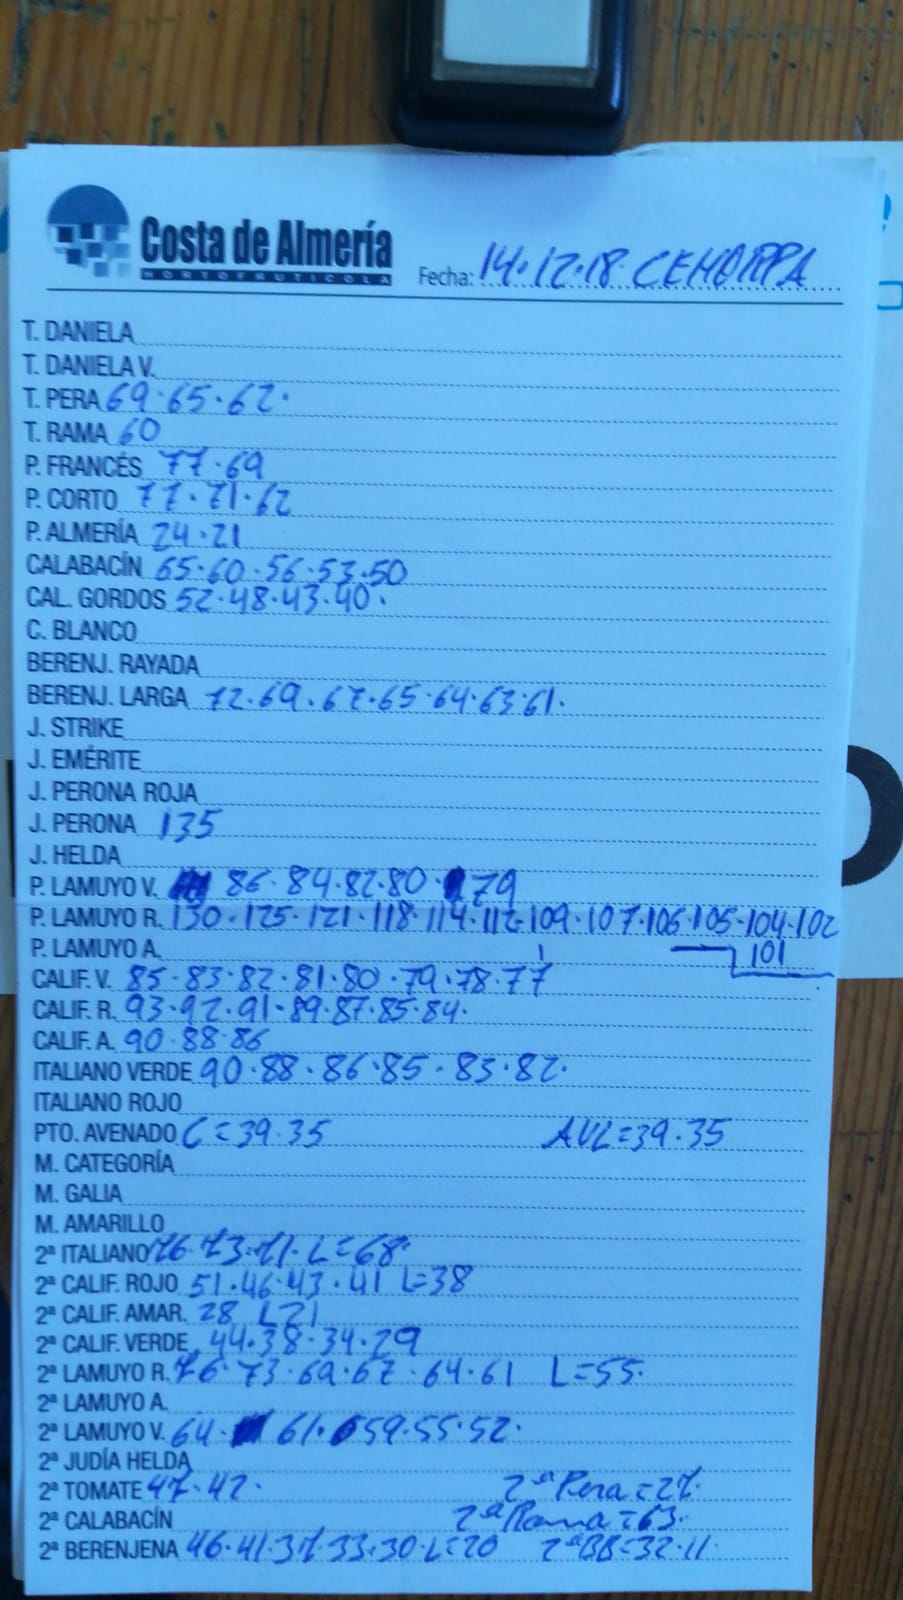 Costa de Almería
HORTOFRUTICOLA
Fecha: 14·12·18· CEHORPA
T. DANIELA
T. DANIELA V.
T. PERA 69·65·62·
T. RAMA 60
P. FRANCÉS 77·69
P. CORTO 77·71·62
P. ALMERÍA 24·21
CALABACÍN 65·60·56·53·50
CAL. GORDOS 52·48·43·40·
C. BLANCO
BERENJ. RAYADA
BERENJ. LARGA 72·69·67·65·64·63·61·
J. STRIKE
J. EMÉRITE
J. PERONA ROJA
J. PERONA 135
J. HELDA
P. LAMUYO V. 86·84·82·80·79
P. LAMUYO R. 130·125·121·118·114·112·109·107·106·105·104·102
P. LAMUYO A. 101
CALIF. V. 85·83·82·81·80·79·78·77
CALIF. R. 93·92·91·89·87·85·84·
CALIF. A. 90·88·86
ITALIANO VERDE 90·88·86·85·83·82·
ITALIANO ROJO
PTO. AVENADO C=39·35 AVL=39·35
M. CATEGORÍA
M. GALIA
M. AMARILLO
2ª ITALIANO 76·73·71·L=68·
2ª CALIF. ROJO 51·46·43·41 L=38
2ª CALIF. AMAR. 28 L21
2ª CALIF. VERDE 44·38·34·29
2ª LAMUYO R. 76·73·69·67·64·61 L=55·
2ª LAMUYO A.
2ª LAMUYO V. 64·61·59·55·52·
2ª JUDÍA HELDA
2ª TOMATE 47·42· 2ªPera=27·
2ª CALABACÍN 2ªRama=63·
2ª BERENJENA 46·41·37·33·30·L=20 2ªBB=32·11·